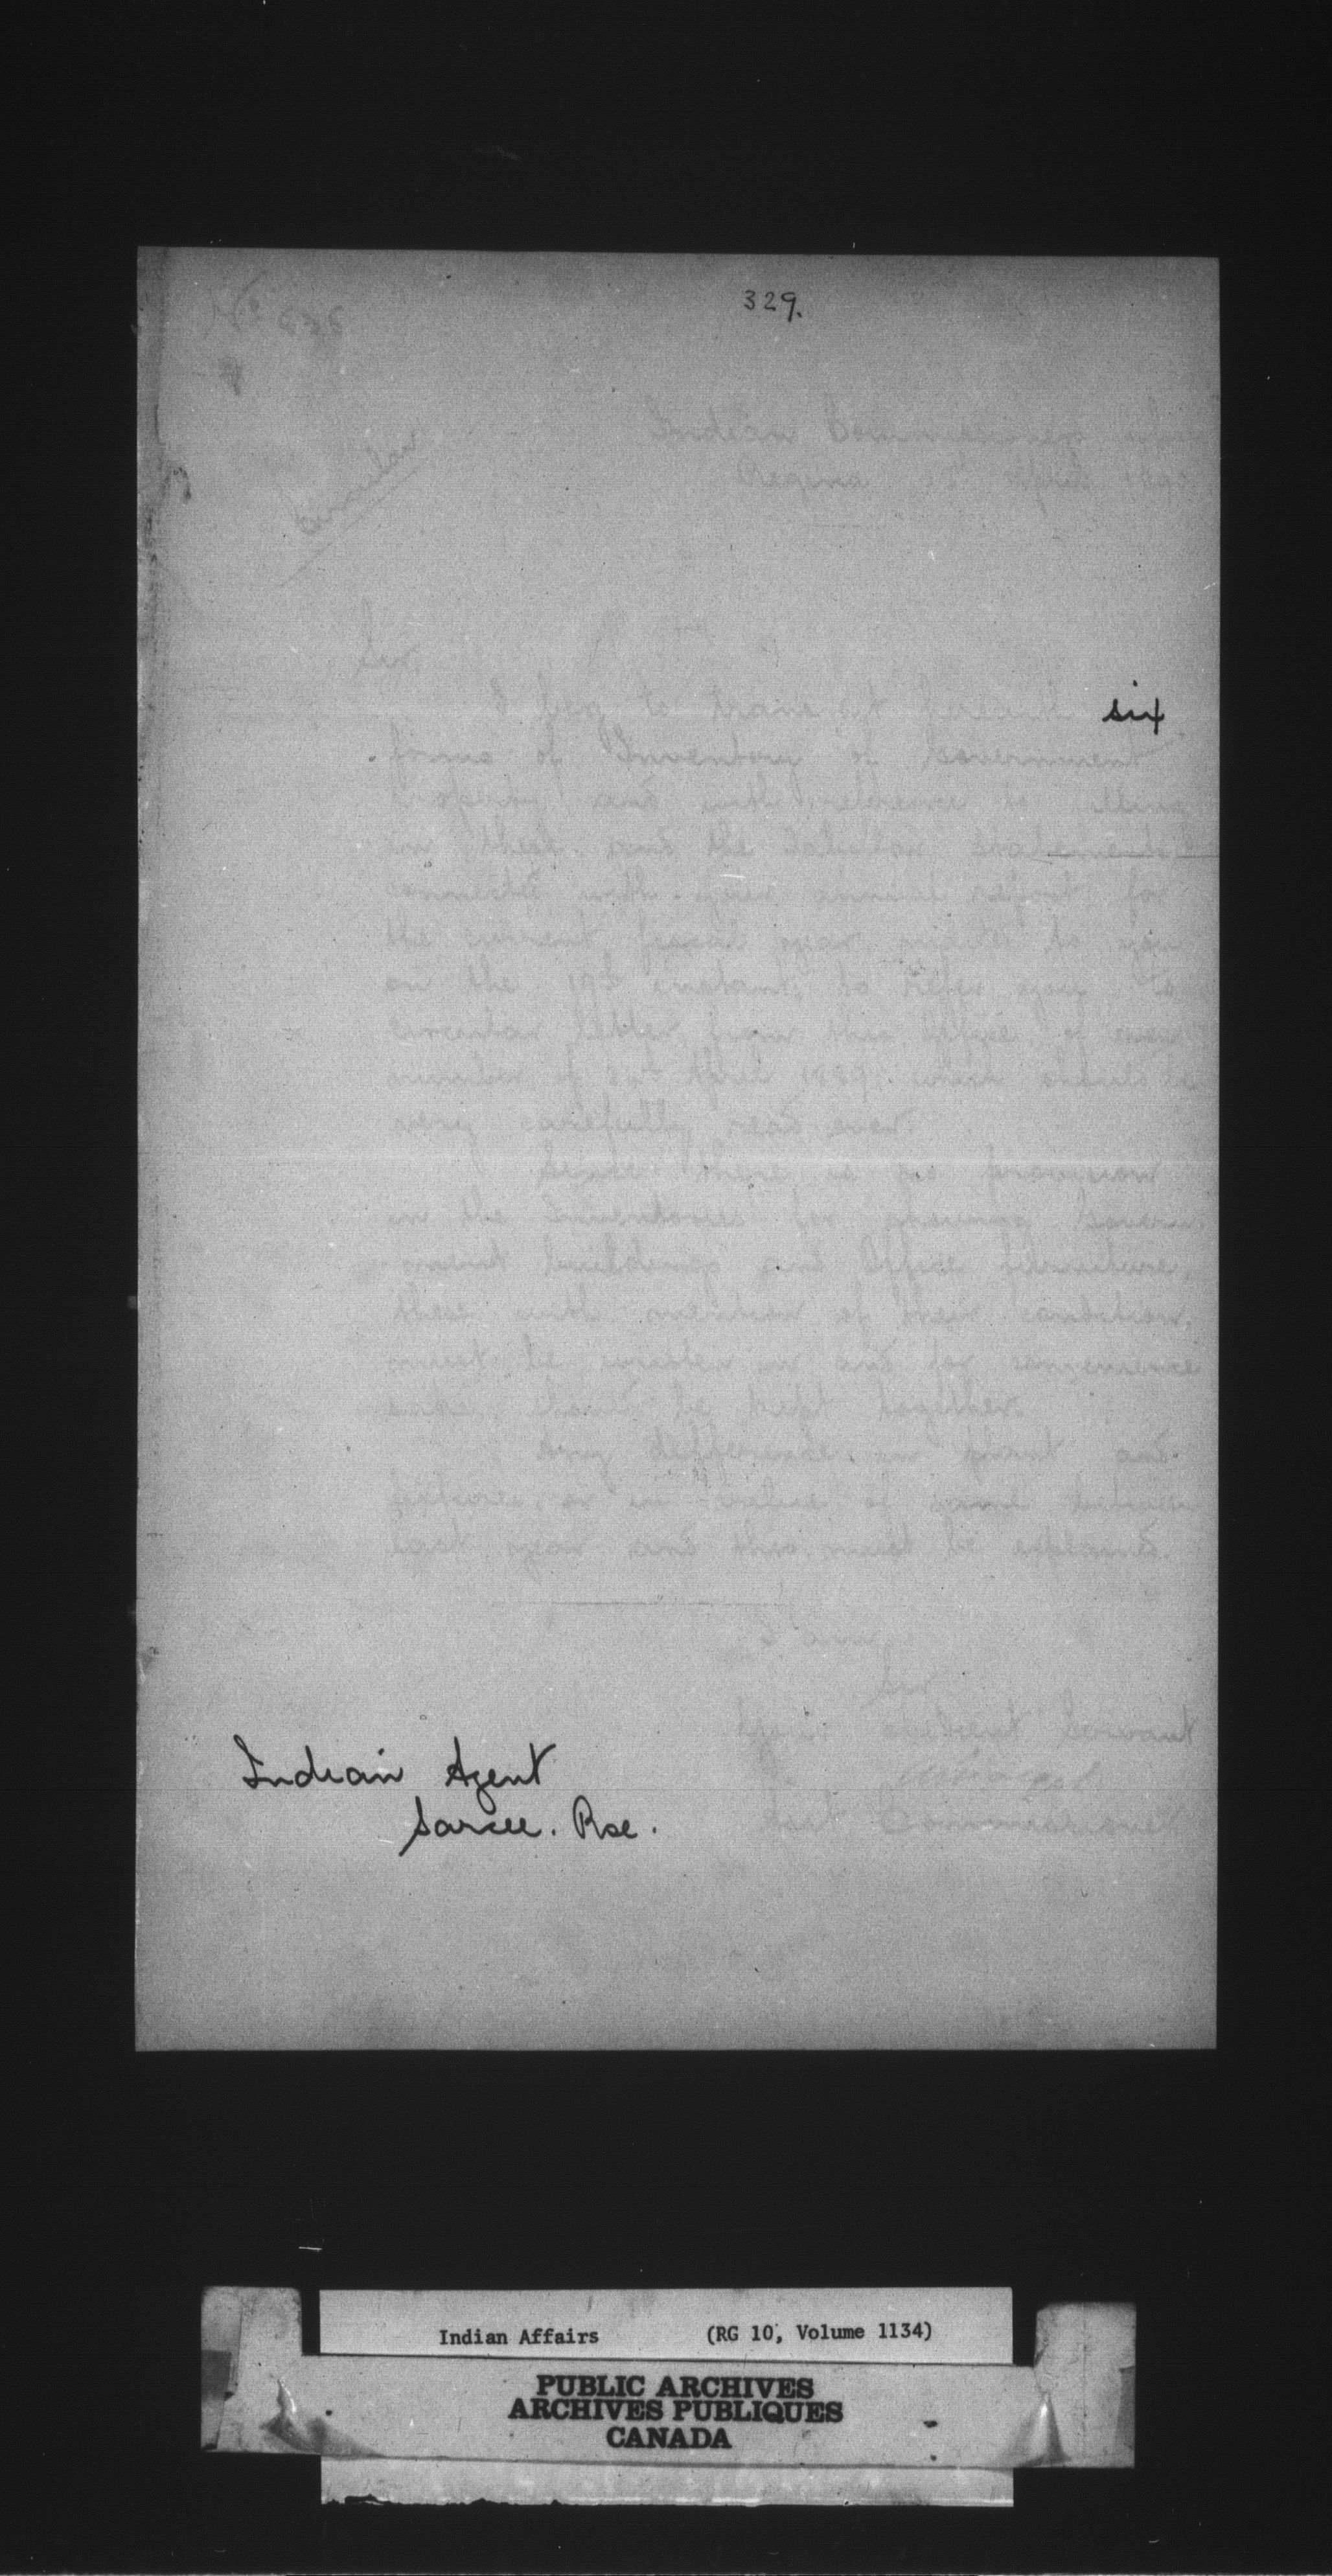 329.
Circular
Indian Commissioner
Regina April
Sir
I beg to transmit herewith six
forms of Inventory of Government
property and with reference to filling
in these and the Tabular Statements
connected with your annual report for
the current fiscal year, mailed to you
on the 19th instant, to refer you to
Circular letter from this Office of even
number of April 1889, which should be
very carefully read over.
Since there is no provision
in the Inventories for showing Govern
ment buildings and Office furniture,
these with mention of their condition,
must be written in and for convenience
sake, should be kept together.
Any difference in plant and
fixtures, or in value of same between
last year and this must be explained.
I am,
Sir
Your obedient Servant
Commissioner
Indian Agent
Sarcee. Rse.
Indian Affairs (RG 10, Volume 1134)
PUBLIC ARCHIVES
ARCHIVES PUBLIQUES
CANADA